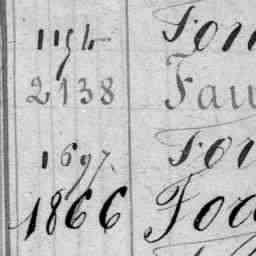 1194 Fon
2138 Fau
1697 Fou
1866 Foo